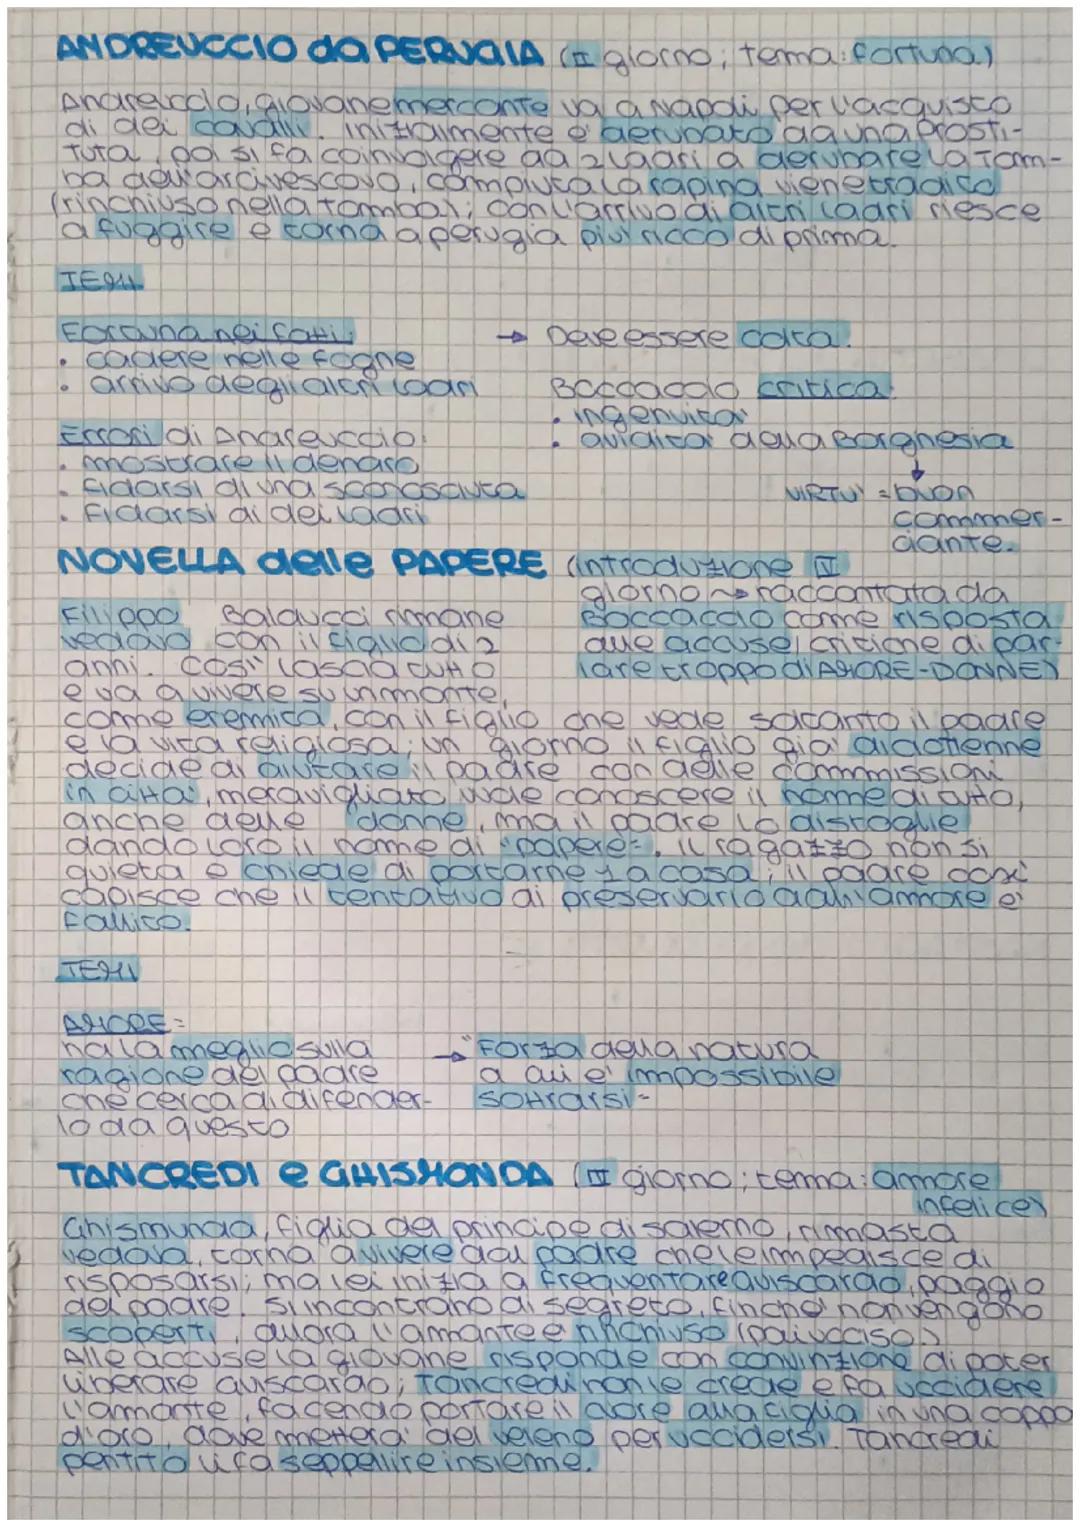 ANDREUCCIO da PERUGIA (II giorno; tema: fortuna)
Andreuccio, giovane mercante va a Napoli per l'acquisto
di dei cavalli. Inizialmente e' derubato da una prosti-
tuta, poi si fa coinvolgere da 2 ladri a derubare la tom-
ba dell'arcivescovo, compiuta la rapina viene tradito
(rinchiuso nella tomba); con l'arrivo di altri ladri riesce
a fuggire e torna a perugia piu' ricco di prima.
TEMI
Fortuna nei fatti:
• cadere nelle fogne
• arrivo degli altri ladri
→ Deve essere colta.
Boccaccio critica:
• ingenuita'
• avidita' della Borghesia
↓
VIRTU' = buon
commer-
ciante.
Errori di Andreuccio:
• mostrare il denaro
• fidarsi di una sconosciuta
• fidarsi di dei ladri
NOVELLA delle PAPERE (introduzione IV
giorno ~> raccontata da
Boccaccio come risposta
alle accuse/critiche di par-
lare troppo di AMORE-DONNE)
Filippo Balducci rimane
vedovo con il figlio di 2
anni. Cosi' lascia tutto
e va a vivere su un monte,
come eremita, con il figlio che vede soltanto il padre
e la vita religiosa; un giorno il figlio gia' diciottenne
decide di aiutare il padre con delle commissioni
in citta', meravigliato vuole conoscere il nome di tutto,
anche delle donne, ma il padre lo distoglie
dando loro il nome di "papere". Il ragazzo non si
quieta e chiede di portarne 1 a casa; il padre cosi'
capisce che il tentativo di preservarlo dall'amore e'
fallito.
TEMI
AMORE=
ha la meglio sulla
ragione del padre
che cerca di difender-
lo da questo
→ "Forza della natura
a cui e' impossibile
sottrarsi"
TANCREDI e GHISMONDA (IV giorno; tema: amore
infelice)
Ghismunda, figlia del principe di salerno, rimasta
vedova, torna a vivere dal padre che le impedisce di
risposarsi; ma lei inizia a frequentare Guiscardo, paggio
del padre. Si incontrano di segreto, finche' non vengono
scoperti, allora l'amante e' rinchiuso (poi ucciso).
Alle accuse la giovane risponde con convinzione di poter
liberare Guiscardo; Tancredi non le crede e fa uccidere
l'amante, facendo portare il cuore alla figlia in una coppa
d'oro, dove mettera' del veleno per uccidersi. Tancredi
pentito li fa seppellire insieme.